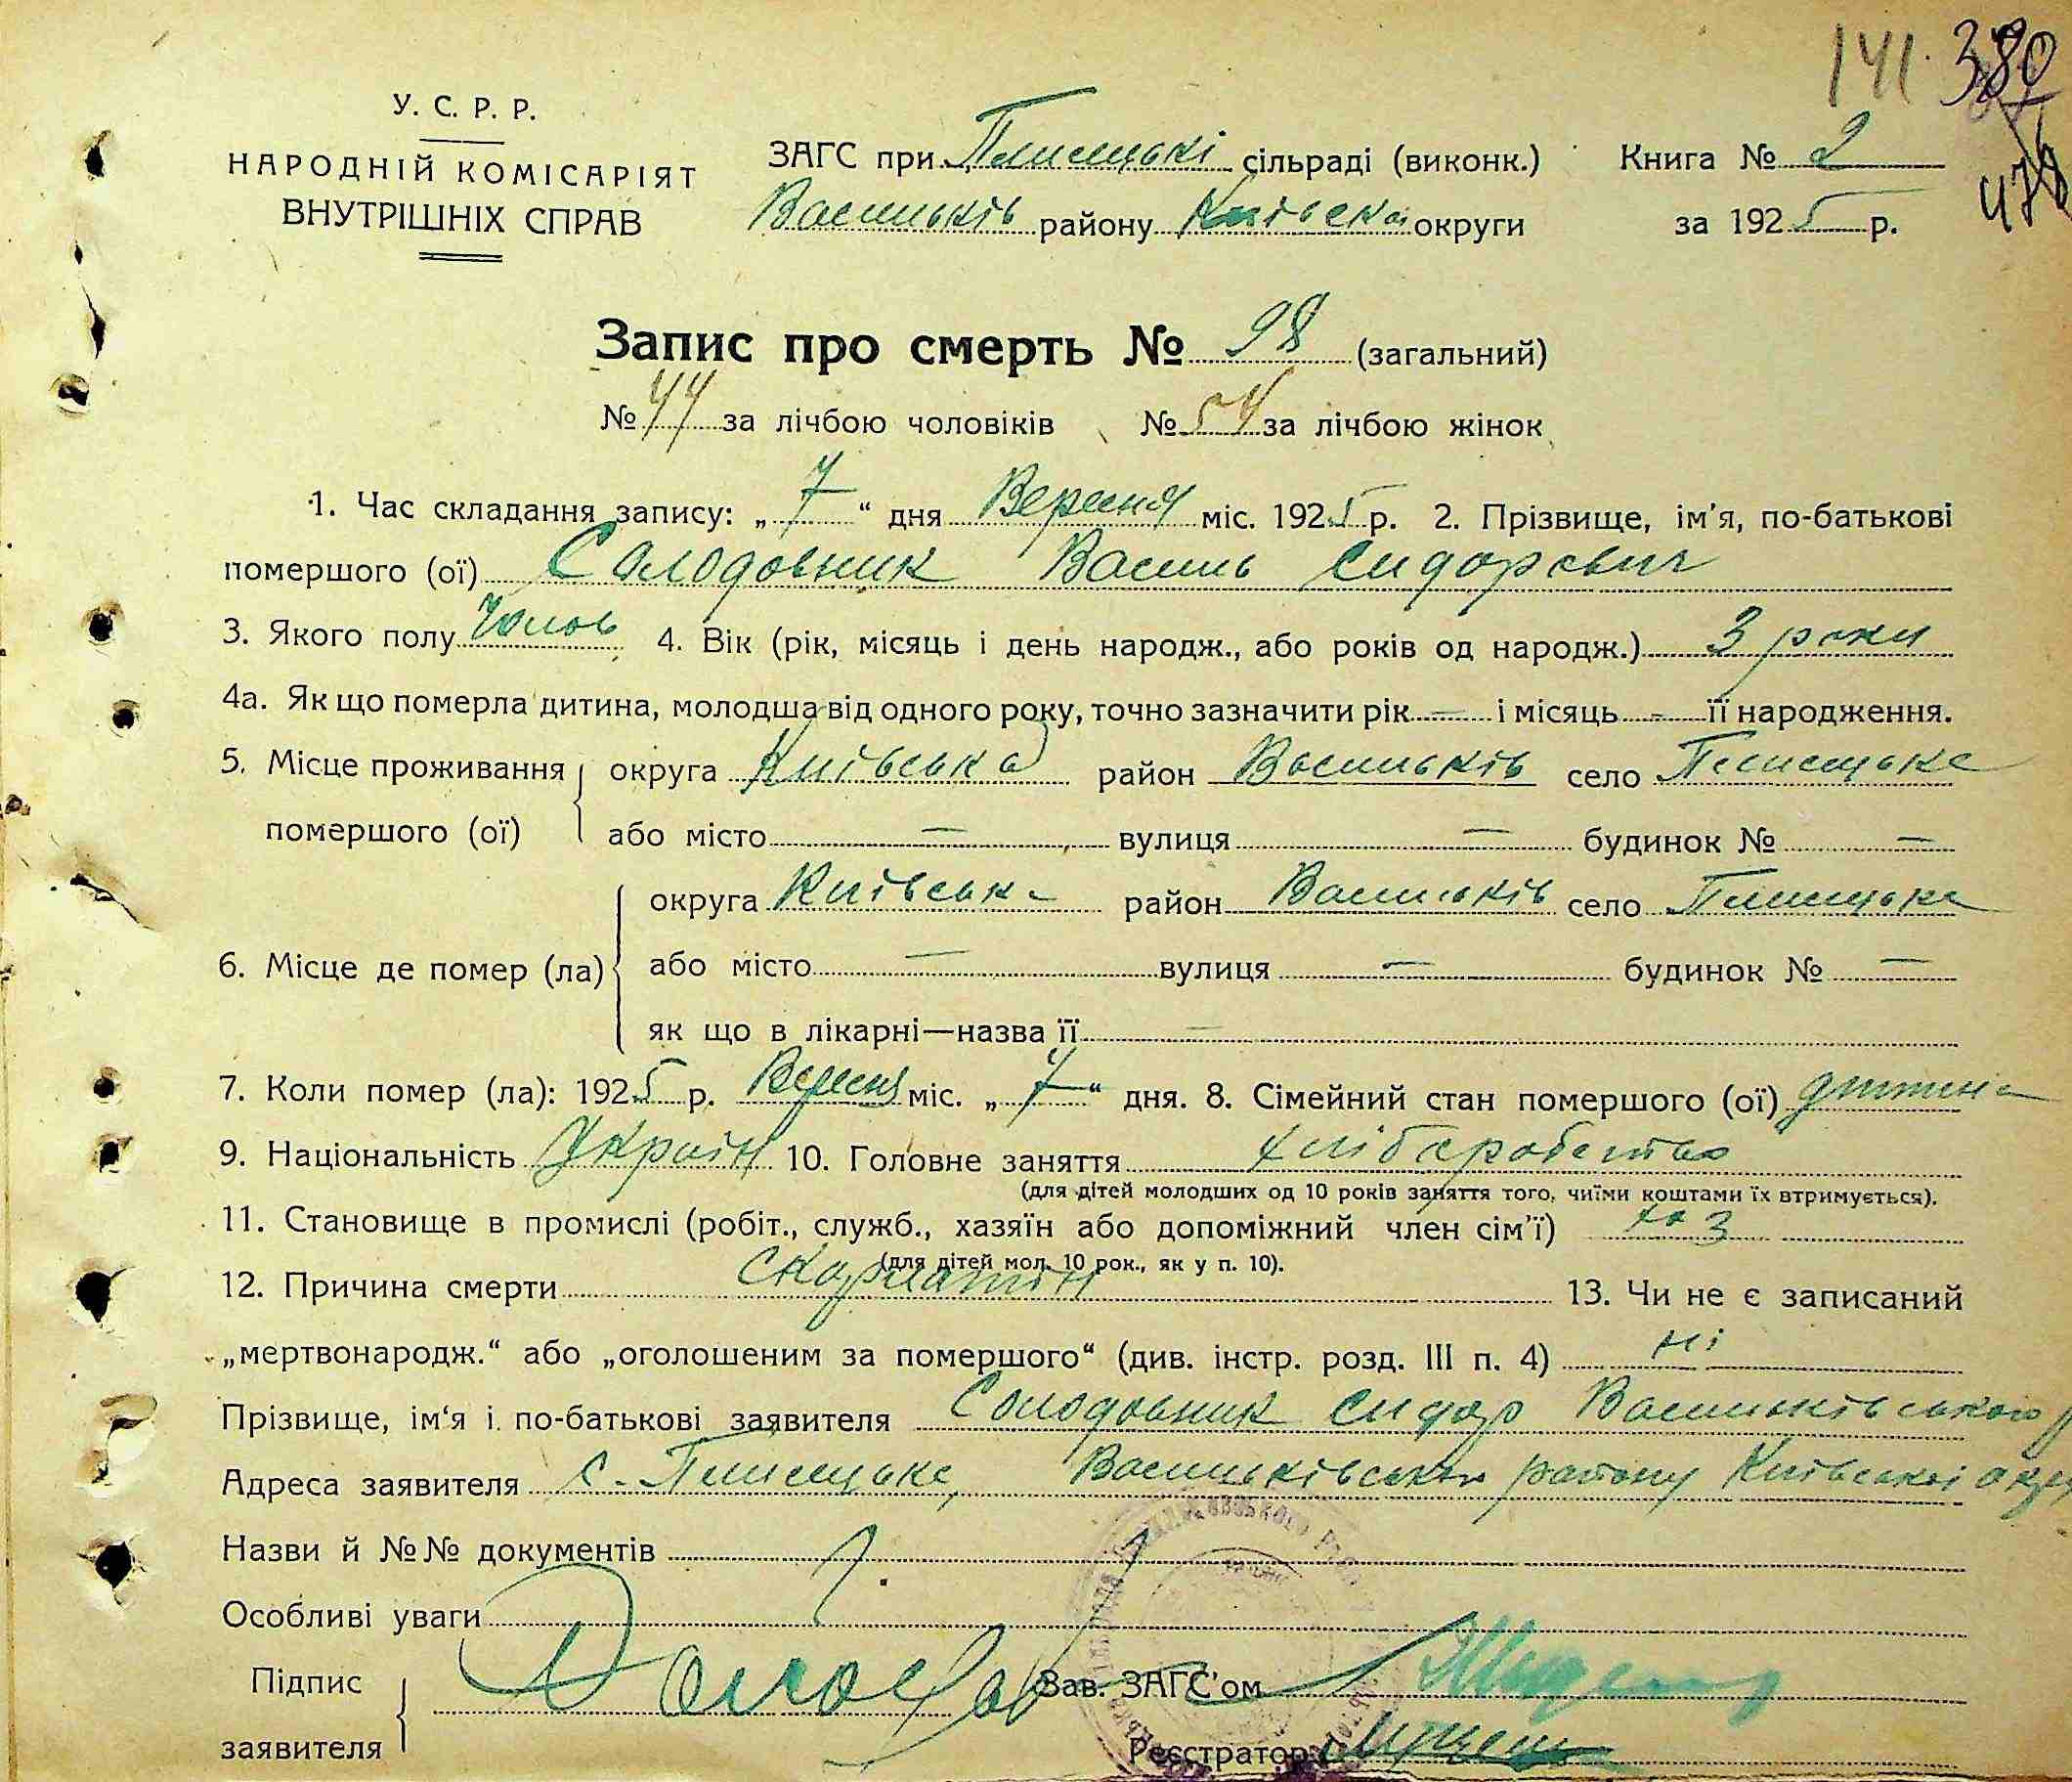 141. 380
У. С. Р. Р.
НАРОДНІЙ КОМІСАРІЯТ
ВНУТРІШНІХ СПРАВ
ЗАГС при Плисецькі сільраді (виконк.) Книга № 2
478
Васильків району Київська округи за 1925 р.
Запис про смерть № 98 (загальний)
№ 44 за лічбою чоловіків № 54 за лічбою жінок
1. Час складання запису: „7“ дня Вересня міс. 1925 р. 2. Прізвище, ім'я, по-батькові
помершого (ої) Солодовник Василь Сидорович
3. Якого полу Чолов 4. Вік (рік, місяць і день народж., або років од народж.) 3 роки
4а. Як що померла дитина, молодша від одного року, точно зазначити рік — і місяць — її народження.
5. Місце проживання округа Київська район Васильків село Плисецьке
помершого (ої) або місто — вулиця — будинок № —
округа Київська район Васильків село Плисецьке
6. Місце де помер (ла) або місто — вулиця — будинок № —
як що в лікарні—назва її —
7. Коли помер (ла): 1925 р. Вересня міс. „7“ дня. 8. Сімейний стан помершого (ої) дитина
9. Національність Україн 10. Головне заняття хліборобство
(для дітей молодших од 10 років заняття того, чиїми коштами їх втримується).
11. Становище в промислі (робіт., служб., хазяїн або допоміжний член сім'ї) хаз
(для дітей мол. 10 рок., як у п. 10).
12. Причина смерти Скарлатін 13. Чи не є записаний
„мертвонародж.“ або „оголошеним за помершого“ (див. інстр. розд. III п. 4) ні
Прізвище, ім'я і по-батькові заявителя Солодовник Сидор Васильківського
Адреса заявителя с. Плисецьке, Васильківського району Київської окр
Назви й №№ документів
Особливі уваги
Підпис
заявителя
Зав. ЗАГС'ом
Реєстратор